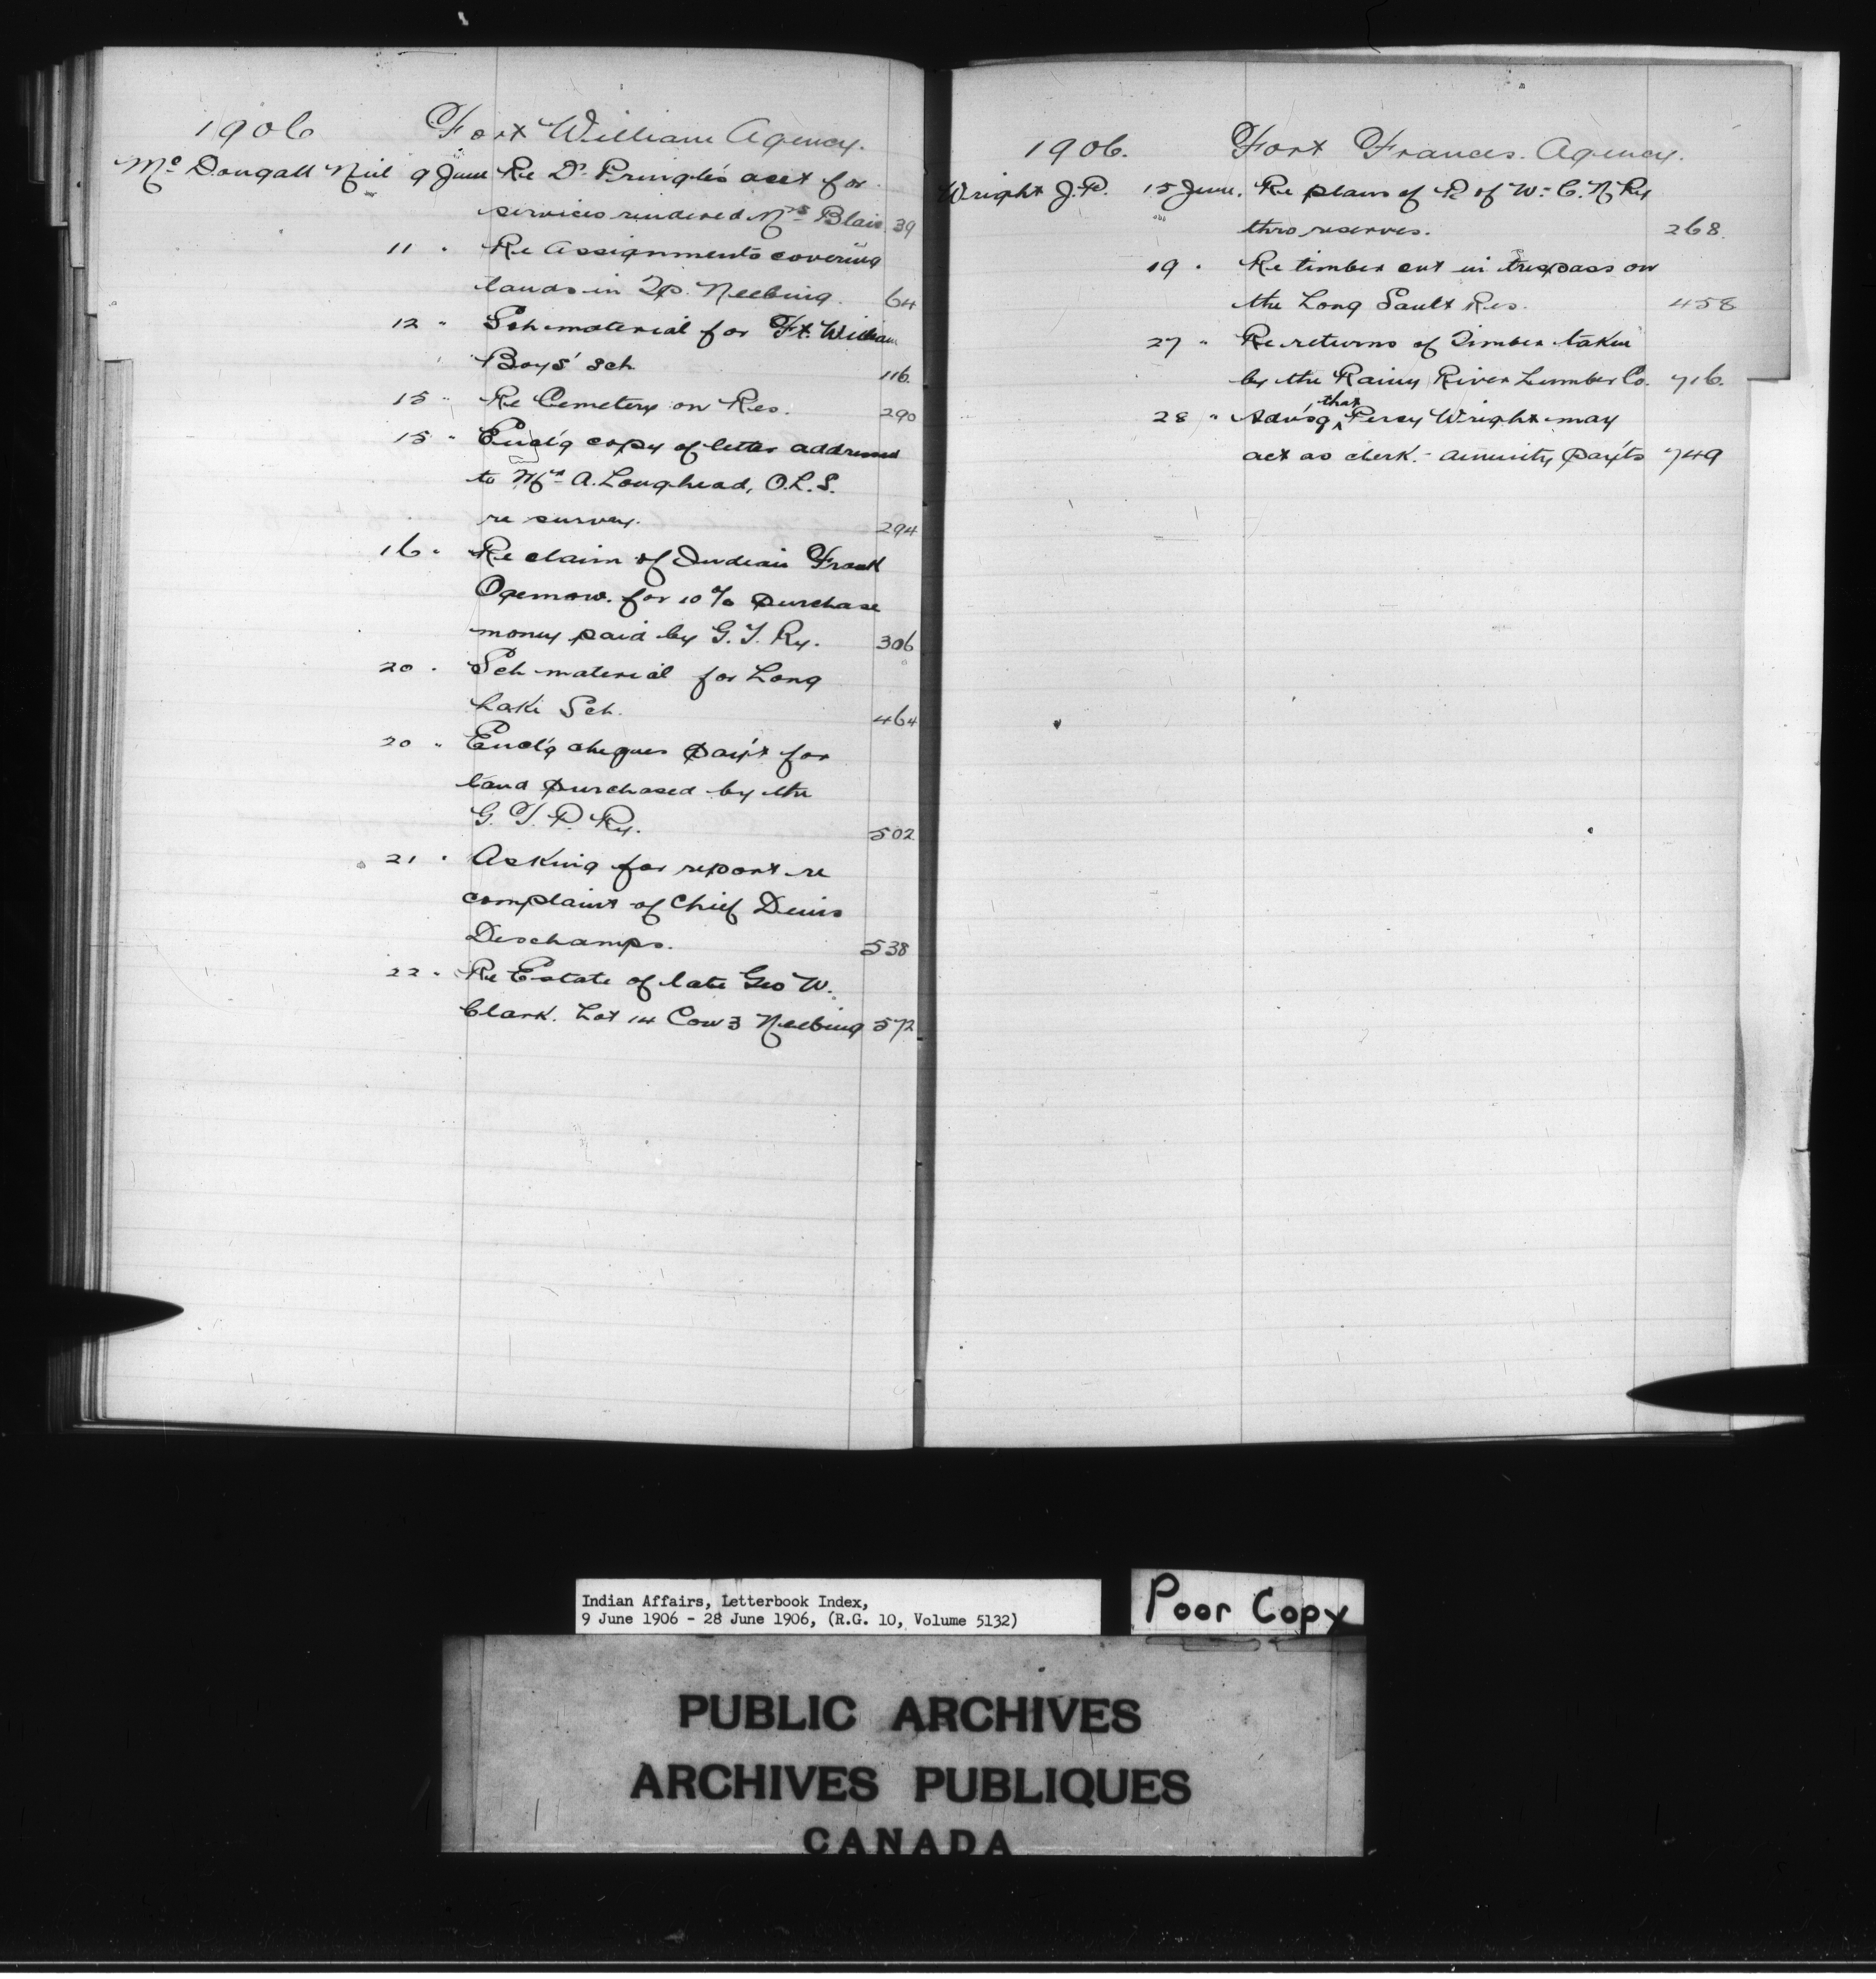 1906 Fort William Agency.
McDougall Neil 9 June Re Dr Pringle's acct for
services rendered Mrs Blair. 39
11 " Re Assignments covering
lands in Tp. Neebing. 64
12 " Sch material for Ft. William
Boys' Sch. 116
15 " Re Cemetery on Res. 290
15 " Encl'g copy of letter addressed
to Mr A. Loughead, O.L.S.
re survey. 294
16 " Re claim of Indian Frank
Ogemow. for 10% purchase
money paid by G.T. Ry. 306
20 " Sch material for Long
Lake Sch. 464
20 " Encl'g cheques pay't for
land purchased by the
G.T.P. Ry. 502
21 " Asking for report re
complaint of Chief Denis
Deschamps. 538
22 " Re Estate of late Geo W.
Clark. Lot 14 Con 3 Neebing 572
1906. Fort Frances. Agency.
Wright J.P. 15 June. Re plans of R of W - C.N Ry
thro reserves. 268.
19 " Re timber cut in trespass on
the Long Sault Res. 458
27 " Re returns of Timber taken
by the Rainy River Lumber Co. 716.
28 " Advs'g that Percy Wright may
act as clerk. - annuity pay'ts 749
Indian Affairs, Letterbook Index,
9 June 1906 - 28 June 1906, (R.G. 10, Volume 5132)
Poor Copy
PUBLIC ARCHIVES
ARCHIVES PUBLIQUES
CANADA